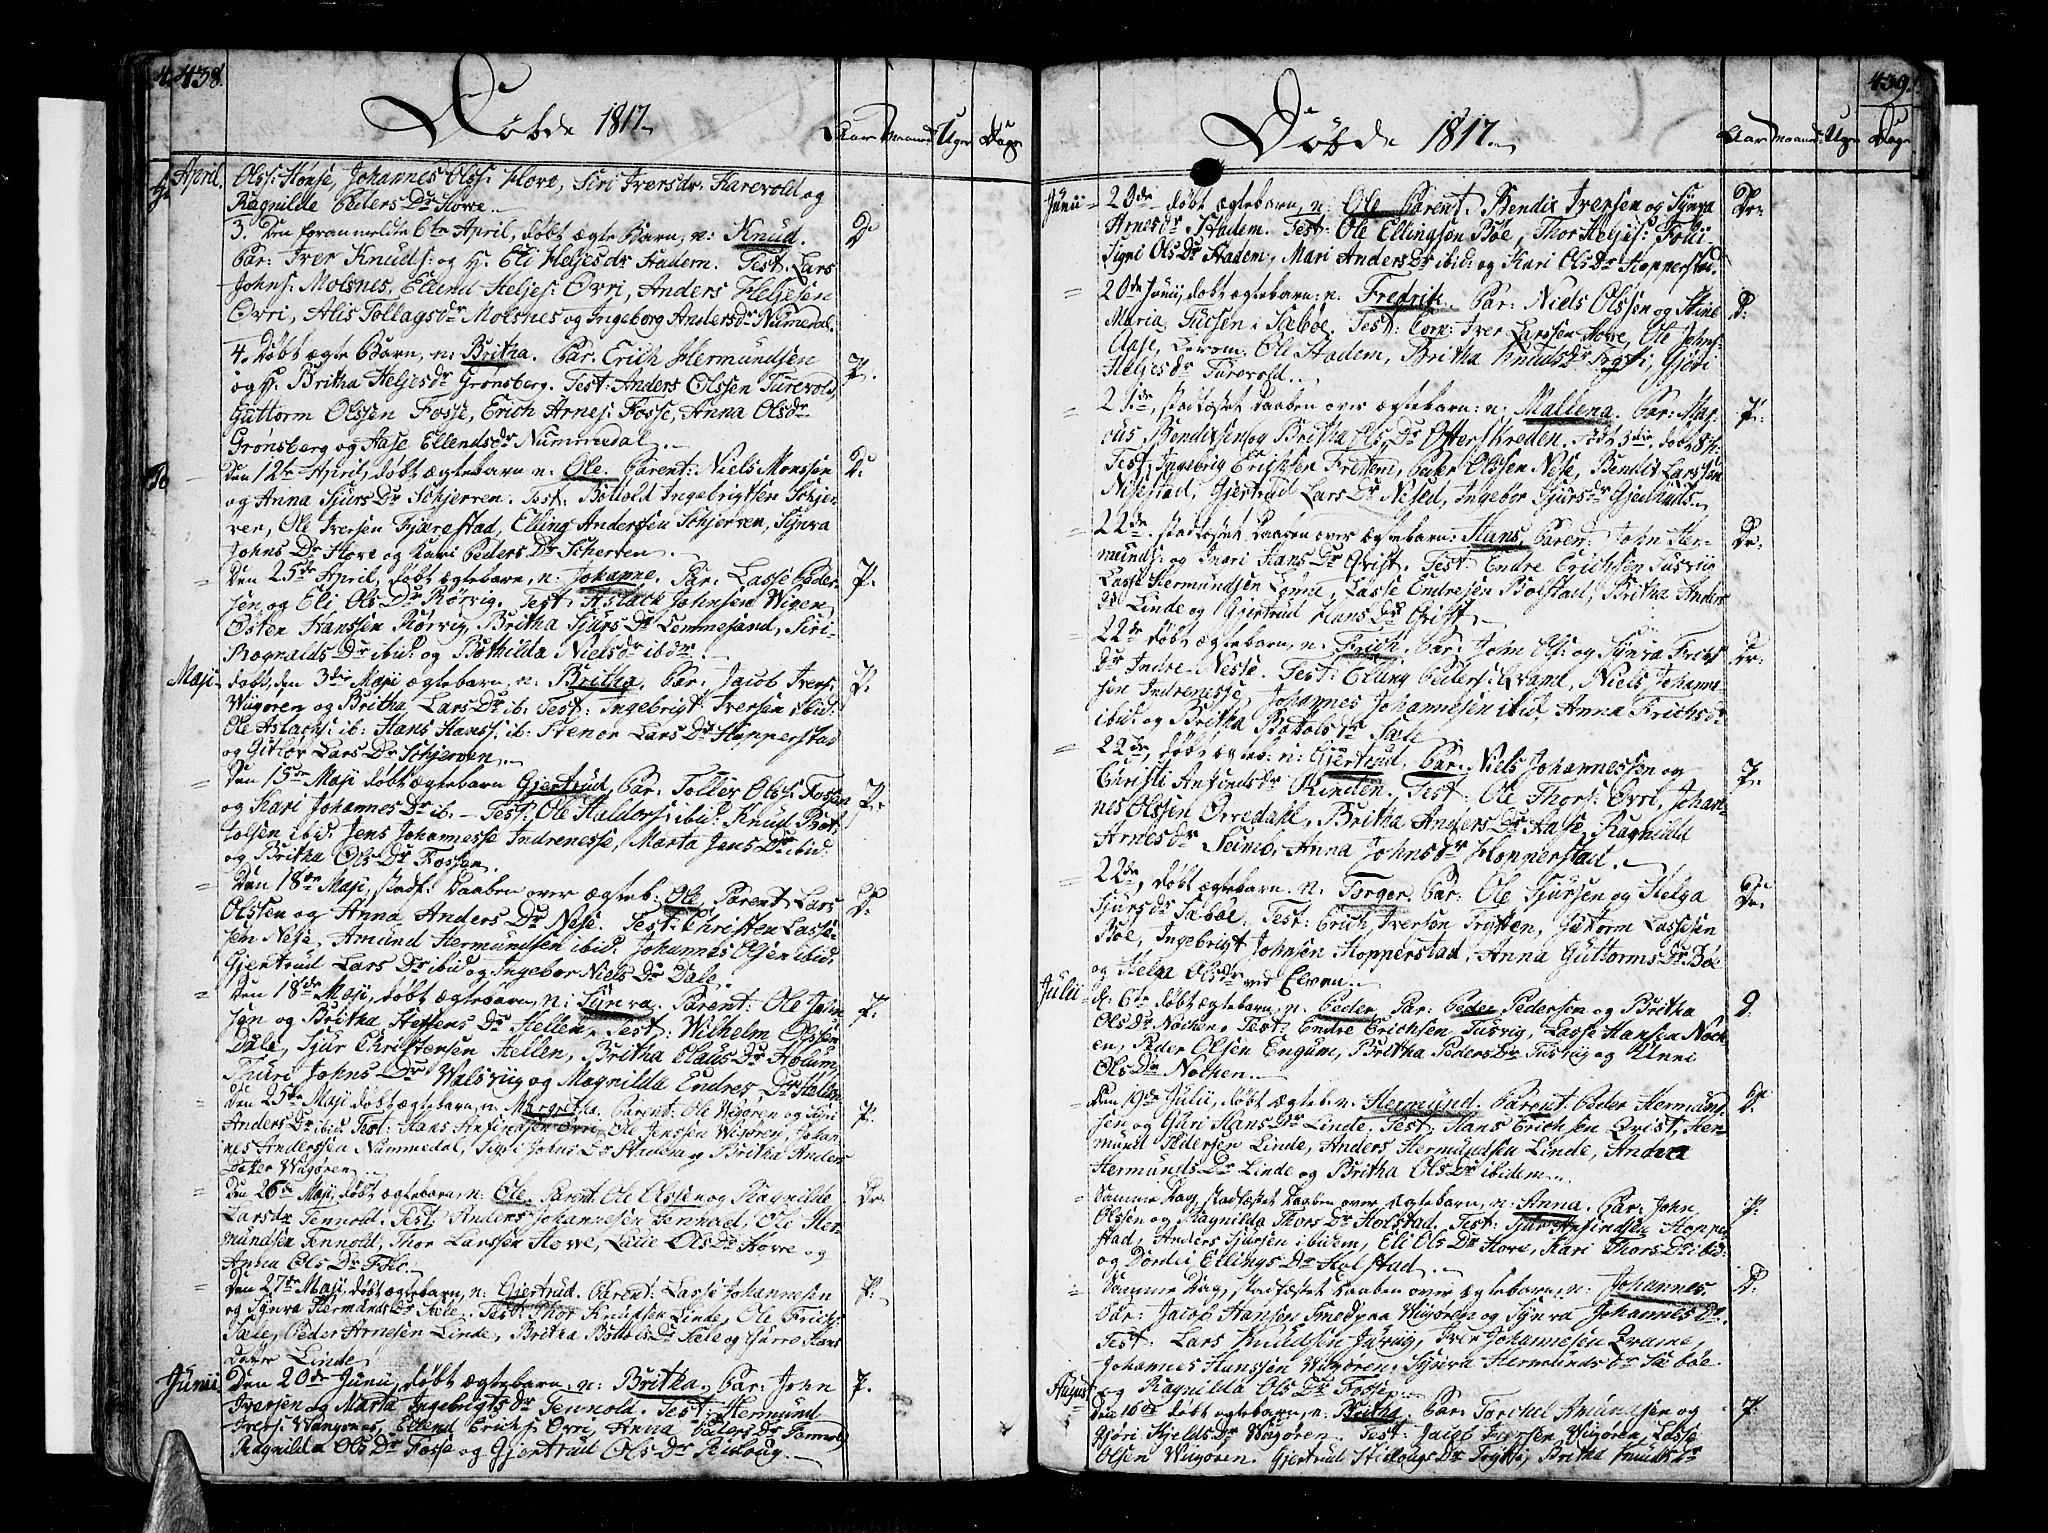 438.
Døbde 1817.
Aar Maaned Uger Dage
April. Olss: Hønse, Johannes Olss: Hove, Siri Iversdr Farevold og
Ragnilde Peders Dr Hove.
3. Den foranmeldte 6te April, døbt ægte Barn, n: Knud.
Par: Iver Knuds: og H. Eli Heljesdr Stadem. Test: Lars
Johns: Molsnes, Ellend Heljes: Øvri, Anders Heljesen
Øvri, Alis Tollagsdr Molsnes og Ingeborg Andersdr Numedal.
4. Døbt ægte Barn, n: Britha. Par: Erich Hermundsen
og H: Britha Heljesdr Grønsberg. Test: Anders Olssen Turevold,
Guttorm Olssen Fosse, Erich Arnes: Fosse, Anna Olsdr
Grønsberg og Aase Ellendsdr Nummedal.
Den 12te April, døbt ægtebarn n: Ole. Parent: Niels Monssen
og Anna Sjurs Dr Schjerven. Test: Bottold Ingebrigtsen Schjer-
ven, Ole Iversen Fjærestad, Elling Anderssen Schjerven, Synva
Johns Dr Hove og Kari Peders Dr Scherven.
Den 25de April, døbt ægtebarn, n: Johanne. Par: Lasse Peder-
sen og Eli Ols Dr Rørvig. Test: Aslack Johnsen Wigen,
Østen Hanssen Rørvig, Britha Sjurs Dr Lemmesand, Siri
Rognalds Dr ibid: og Bothilda Nielsdr ibdr.
Maji døbt, den 3die Maji ægtebarn, n: Britha. Par: Jacob Ivers:
Wigøren og Britha Lars Dr ib: Test: Ingebrigt Iversen ibid:
Ole Aslachs: ib: Hans Hanss: ib: Stenør Lars Dr Hopperstad
og Gitlør Lars Dr Schjerven.
Den 15de Maji døbt ægtebarn Gjertrud. Par: Tolleif Olss: Fossen
og Kari Johannes Dr ib. Test: Ole Haldors: ibid: Knud Bot-
tolsen ibid: Jens Johannesse Indrenesse, Marta Jens Dr ibid:
og Britha Ols Dr Fossen.
Den 18de Maji, stadf: Daaben over ægteb: Ole. Parent Lars
Olssen og Anna Anders Dr Nese. Test: Christen Lasse-
sen Nese, Amund Hermundsen ibid: Johannes Olsen ibid:
Gjertrud Lars Dr ibid og Ingebor Niels Dr Dale.
Den 18de Maji, døbt ægtebarn, n: Synva. Parent: Ole John-
sen og Britha Steffens Dr Hellen. Test: Wilhelm Olssen
Dale, Sjur Christensen Hellen, Britha Olaus Dr Holum,
Thuri Johns Dr Walsviig og Magnilda Endres Dr Hellen.
Den 25de Maji døbt ægtebarn, n: Margretha. Parent: Ole Wigøren og Siri
Anders Dr ibid. Test: Hans Anfindsen Øvri, Ole Jenssen Wigøren, Johan-
nes Anderssen Nummedal, Sigri Johns Dr Stadem og Britha Anders
Datter Wigøren.
Den 26de Maji, døbt ægtebarn, n: Ole. Parent: Ole Olssen og Ragnilde
Larsdr Tennold. Test: Anders Johannesen Tennold, Ole Her-
mundsen Tennold, Thor Larssen Hove, Lucie Ols Dr Hove og
Anna Ols Dr
Den 27de Maji, døbt ægtebarn, n: Gjertrud. Parent: Lasse Johannesen
og Synva Hermundsdr Sæle. Test: Thor Knudsen Linde, Ole Erichs:
Sæle, Peder Arnesen Linde, Britha Bottols Dr Sæle og Gurro Hans
Datter Linde.
Junii Den 20de Junii, døbt ægtebarn, n: Britha. Par: John
Iversen og Marta Ingebrigts Dr Tennold. Test: Hermund
Ivers: Wangsnes, Ellend Erichs: Øvri, Anna Peders Dr Tennold,
Ragnilda Ols Dr Fosse og Gjertrud Ols Dr
439.
Døbde 1817.
Aar Maaned Uger Dage
Junii 20de døbt ægtebarn, n: Ole. Parent: Bendix Iversen og Synva
Arnesdr Stadem. Test: Ole Ellingsen Bøe, Thor Heljes:
Sigri Ols Dr Stadem, Mari Anders Dr ibid: og Kari Ols Dr Hopperstad.
20de Junii, døbt ægtebarn: n: Fredrik. Par: Niels Olssen og Stine
Maria i Sæbøe. Test: Corp: Iver Larssen Hove, Ole Johns:
Aase, Ole Stadem, Britha Knuds Dr Gjøri
Heljes Dr Turevold.
21de, stadfæstet Daaben over ægtebarn: n: Mallena. Par: Mar-
cus Bendixsen og Britha Ols Dr
Test: Ingebrig Erichsen Fretem, Peder Olssen Nese, Bendix Larssen
Gjertrud Lars Dr Ingebor Sjurs Dr
22de stadfæstet Daaben over ægtebarn: Hans. Paren: John Her-
munds: og Ingri Hans Dr Qvist. Test: Endre Erichsen
Lasse Hermundsen Lønne, Lasse Endresen Bolstad, Britha Anders
Dr Linde og Gjertrud Hans Dr Qvist.
22de døbt ægtebarn, n: Erich. Par: John Ols: og Synva Erichs
Dr Indre-Nesse. Test: Elling Peders: Qvame, Niels Johanne-
sen Indrenesse, Johannes Johannesen ibid, Anna Erichsdr
ibid: og Britha Bottols Dr Sæle.
22de, døbt ægteb: n: Gjertrud. Par: Niels Johannessen og
Christi Anfindsdr Rinden. Test: Ole Thors: Øvri, Johan-
nes Olssen Ørredahl, Britha Anders Dr Aase, Ragnild
Arnesdr Anna Johnsdr Hopperstad.
22de, døbt ægtebarn, n: Torger. Par: Ole Sjursen og Helga
Sjursdr Sæbøe. Test: Erich Iversen Guttorm Lassesen
Bøe, Ingebrigt Johnsen Hopperstad, Anna Guttorms Dr Bøe
og Helga Olsdr ved Elven.
Julii d: 6te døbt ægtebarn, n: Peder. Par: Peder Pedersen og Britha
Ols Dr Nøchen. Test: Endre Erichsen Lasse Hansen Nøch-
en, Peder Olsen Engum, Britha Peders Dr og Unni
Ols Dr Nøchen.
Den 19de Julii, døbt ægteb n: Hermund. Parent: Peder Hermund-
sen og Guri Hans Dr Linde. Test: Hans Erichsen Qvist, Her-
mund Pedersen Linde, Anders Hermundsen Linde, Andrea
Hermunds Dr Linde og Britha Ols Dr ibidem.
Samme Dag, stadfæstet Daaben over Ægtebarn, n: Anna. Par: John
Olssen og Magnilda Thors Dr Holstad. Test: Sjur Anfindsen Hopper-
stad, Anders Sjursen ibidem, Eli Ols Dr Hove, Kari Thors Dr ibid:
og Dordei Ellings Dr Holstad.
Samme Dag, stadfæstet Daaben over ægtebarn, n: Johannes.
Par: Jacob Hansen Wigøren og Synva Johannes Dr.
Test: Lars Knudsen Iver Johannesen Qvame,
Johannes Hanssen Wigøren, Synva Hermunds Dr Sæbøe
og Ragnilda Ols Dr Fosse.
August Den 16de døbt ægtebarn, n: Britha. Par: Torchel Amundsen og
Gjøri Kjelds Dr Wigøren. Test: Jacob Iversen Wigøren, Lasse
Olsen Wigøren, Gjertrud Dr Britha Knudsdr